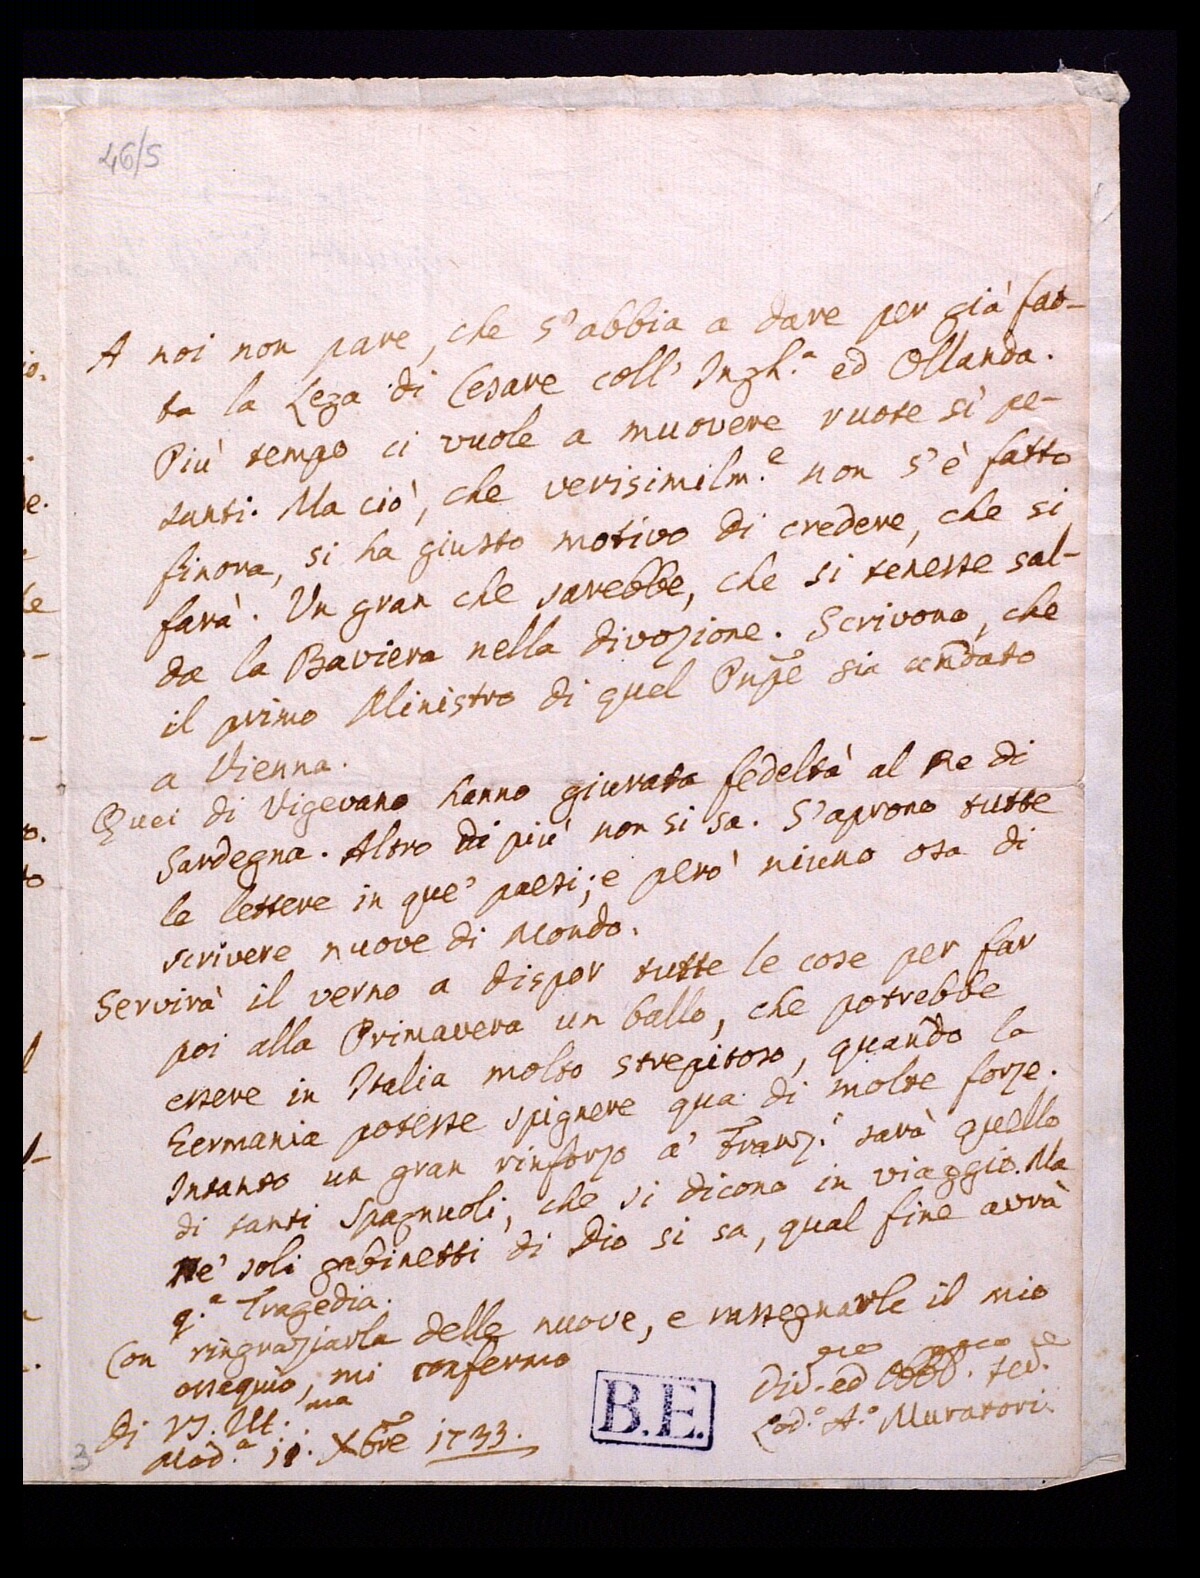 46/5
A noi non pare, che s'abbia a dare per già fat-
ta la Lega di Cesare coll'Ingh.a ed Ollanda.
Più tempo ci vuole a muovere ruote sì pe-
santi. Ma ciò, che verisimilm.e non s'è fatto
finora, si ha giusto motivo di credere, che si
farà. Un gran che sarebbe, che si tenesse sal-
da la Baviera nella divozione. Scrivono, che
il primo Ministro di quel Pnpe sia andato
a Vienna.
Quei di Vigevano hanno giurata fedeltà al Re di
Sardegna. Altro di più non si sa. S'aprono tutte
le lettere in que' paesi; e però niuno osa di
scrivere nuove di Mondo.
Servirà il verno a dispor tutte le cose per far
poi alla Primavera un ballo, che potrebbe
essere in Italia molto strepitoso, quando la
Germania potesse spignere qua di molte forze.
Intanto un gran rinforzo a' Franz.i sarà quello
di tanti Spagnuoli, che si dicono in viaggio. Ma
ne' soli gabinetti di Dio si sa, qual fine avrà
q.a Tragedia.
Con ringraziarla delle nuove, e rassegnarle il mio
ossequio, mi confermo
Di V.S. Ill.ma
Div.mo ed Obbl. ser.e
Lod.o A.o Muratori.
Mod.a 11. Xbre 1733.
B.E.
3